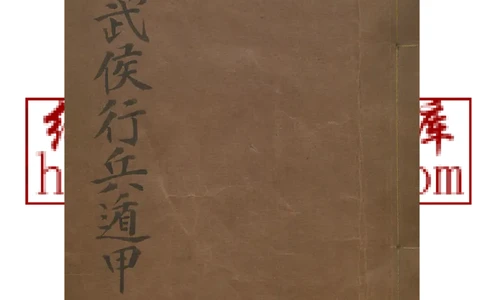 武侯行兵遁甲
库
h
om